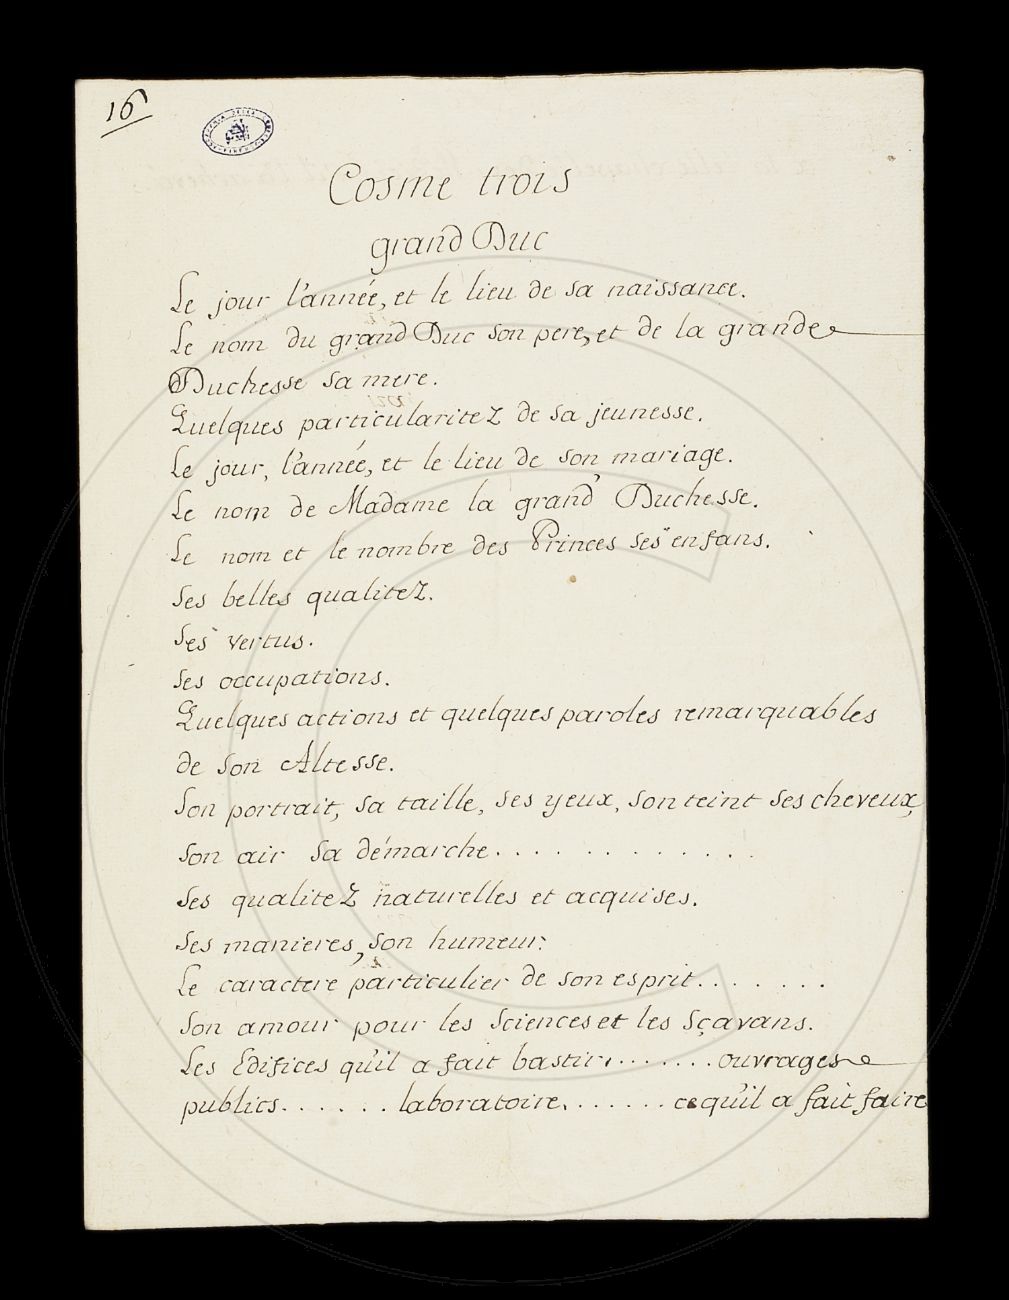 16
Cosme trois
grand Duc
Le jour l'année, et le lieu de sa naissance.
Le nom du grand Duc son pere, et de la grande
Duchesse sa mere.
Quelques particularitez de sa jeunesse.
Le jour, l'année, et le lieu de son mariage.
Le nom de Madame la grand' Duchesse.
Le nom et le nombre des Princes ses enfans.
Ses belles qualitez.
Ses vertus.
Ses occupations.
Quelques actions et quelques paroles remarquables
de son Altesse.
Son portrait, sa taille, ses yeux, son teint ses cheveux,
son air sa démarche. . . . . . . . . . . .
Ses qualitez naturelles et acquises.
Ses manieres, son humeur.
Le caractere particulier de son esprit. . . . . . .
Son amour pour les Sciences et les Sçavans.
Les Edifices qu'il a fait bastir. . . . . . . . ouvrages
publics. . . . . . . laboratoire. . . . . . . ce qu'il a fait faire